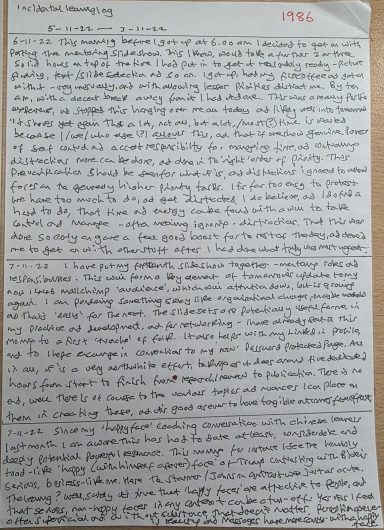 Incidental learning log
1986
5-11-22 — 7-11-22
6-11-22 This morning before I got up at 6.00 am I decided to get on with
putting the mentoring slideshow. This I know, would take a further 2 or three
solid hours on top of the time I had put in to get it reasonably ready - picture
finding, text/slide selection and so on. I got up, had my first coffee and got on
with it - very unusually, and with allowing lesser priorities distract me. By ten
am, with a decent break away from it I had it done. This was a really positive
experience, and stopped this hanging over me all today and likely well into tomorrow
It shows yet again that a lot, not all, but a lot, of time is wasted
because I (we) allow this, and that if we show genuine powers
of self control and accept responsibility for managing time, and outcomes
distractions more can be done, and done in the 'right' order of priority. This
procrastination should be seen for what it is, and distractions ignored to allow
focus on the genuinely higher priority tasks. It's far too easy to protest
we have too much to do, and get distracted. I do believe, as I do find a
hard to do, that time and energy can be found with a will to take
control and manage - often meaning ignoring distractions. That this was
done so early on gave a feel good boost for the rest of the day, and allowed
me to get on with other stuff after I had done what
7-11-22 I have put my fifteenth slideshow together - mentoring roles and
responsibilities. This will form a key element of tomorrow's update to my
now 1 week mailchimp 'audience', which was attention down, but is growing
again. I am pondering something sexy like organisational change, maybe models
as that's 'easy' for the next. The slide sets are potentially useful for me in
my practice and development, and for networking - I have already sent a this
morning to a first 'tranche' of folk. It also helps with my Linked in profile,
and to I hope exchange in connections to my now password protected page. All
in all, it is a very worthwhile effort, taking as it does around five dedicated
hours from start to finish from research/renewal to publication. There is no
end, well there is of course to the various topics and nuances I can place on
them in creating these, and it is good as ever to have tangible outcomes from effort
7-11-22 Since my 'happy face' coaching conversation with chinese learners
last month I am aware this has had to date at least, considerable and
deeply potential powerful resonance. This morning for instance I see the horribly
toad-like 'happy (with himself as ever) face' of Trump contrasting with Biden's
serious, business-like one. Here the Starmer / Sunak contrast was just as acute.
The learning? well, surely it's true that 'happy faces' are attractive to people, and
that serious, non-happy faces in any context can be a turn-off. Yes yes I feel
often superficial and without substance, that doesn't matter.